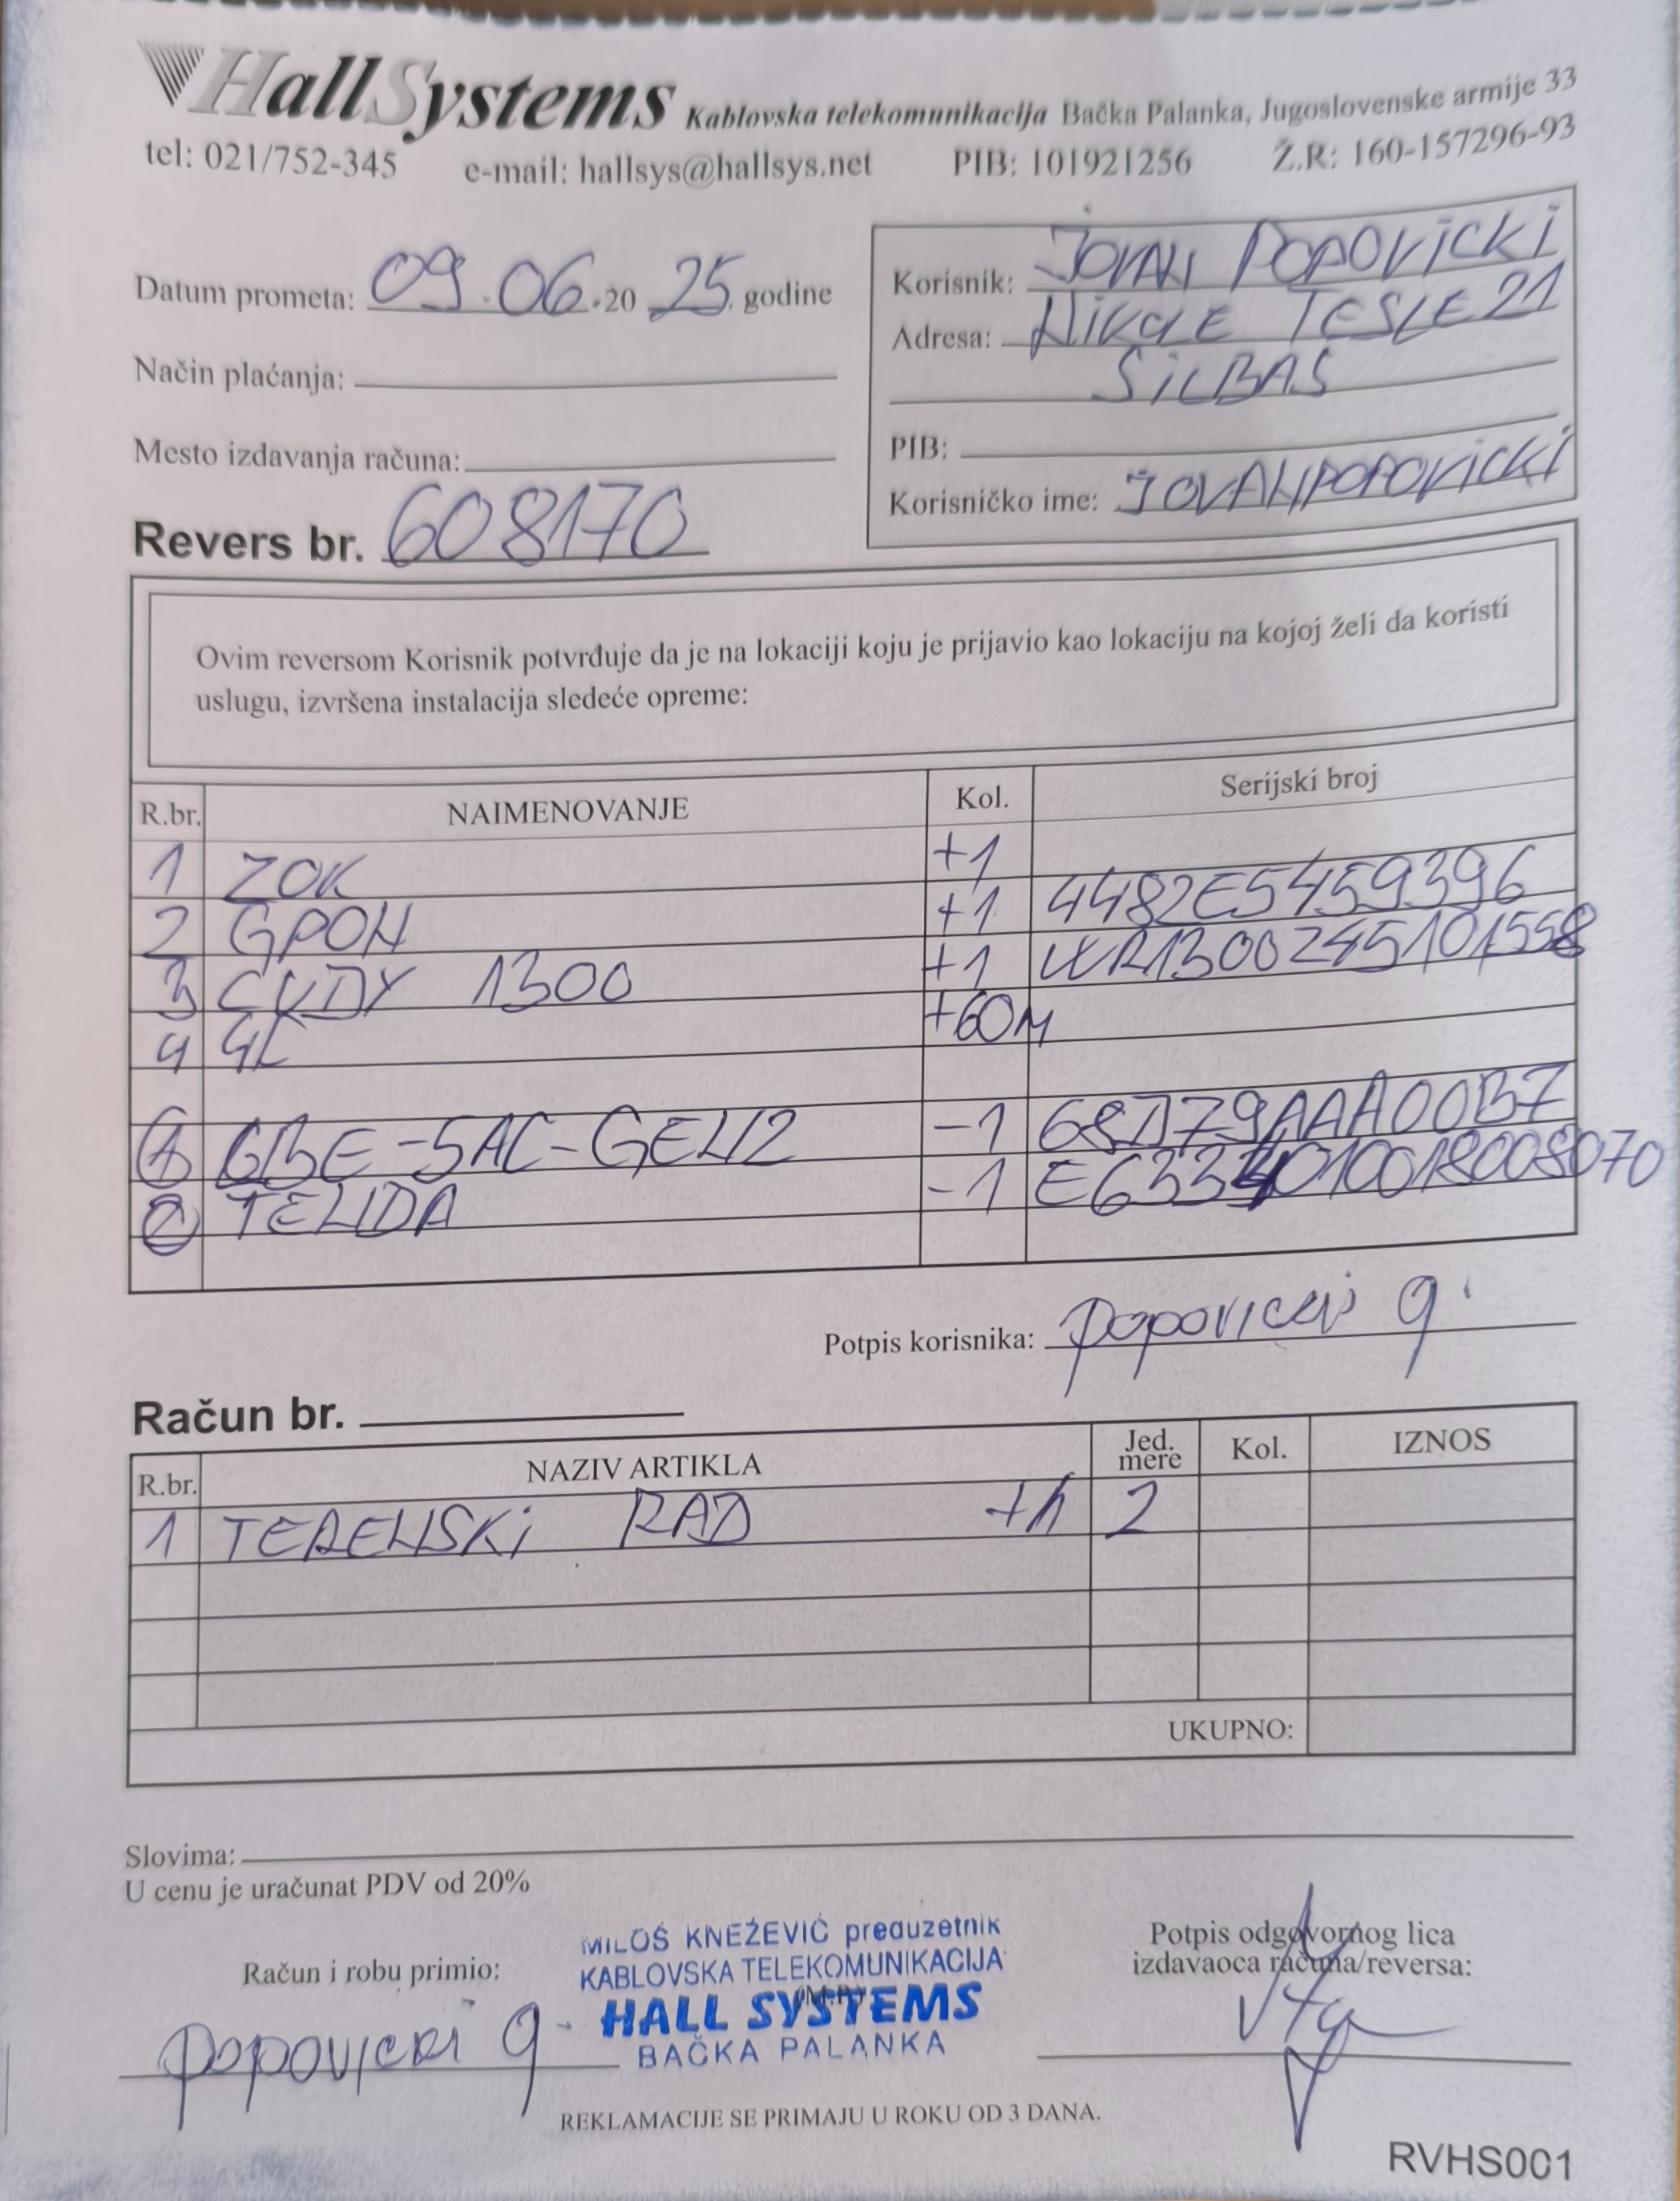 HallSystems Kablovska telekomunikacija Bačka Palanka, Jugoslovenske armije 33
tel: 021/752-345 e-mail: hallsys@hallsys.net PIB: 101921256 Ž.R: 160-157296-93
Datum prometa: 09.06.2025. godine
Način plaćanja:
Mesto izdavanja računa:
Revers br. 608170
Korisnik: JOVAN POPOVICKI
Adresa: NIKOLE TESLE 21
SILBAŠ
PIB:
Korisničko ime: JOVANPOPOVICKI
Ovim reversom Korisnik potvrđuje da je na lokaciji koju je prijavio kao lokaciju na kojoj želi da koristi
uslugu, izvršena instalacija sledeće opreme:
R.br. NAIMENOVANJE Kol. Serijski broj
1 ZOK +1
2 GPON +1 4482E5459396
3 CUDY 1300 +1 WR1300245101558
4 +60M
1 GBE-5AC-GEN2 -1 68D79AAA00B7
2 TENDA -1
Potpis korisnika: Popovicki J.
Račun br.
R.br. NAZIV ARTIKLA Jed. mere Kol. IZNOS
1 TERENSKI RAD +h 2
UKUPNO:
Slovima:
U cenu je uračunat PDV od 20%
Račun i robu primio:
Popovicki J.
MILOŠ KNEŽEVIĆ preduzetnik
KABLOVSKA TELEKOMUNIKACIJA
(M.P.)
HALL SYSTEMS
BAČKA PALANKA
Potpis odgovornog lica
izdavaoca računa/reversa:
REKLAMACIJE SE PRIMAJU U ROKU OD 3 DANA.
RVHS001